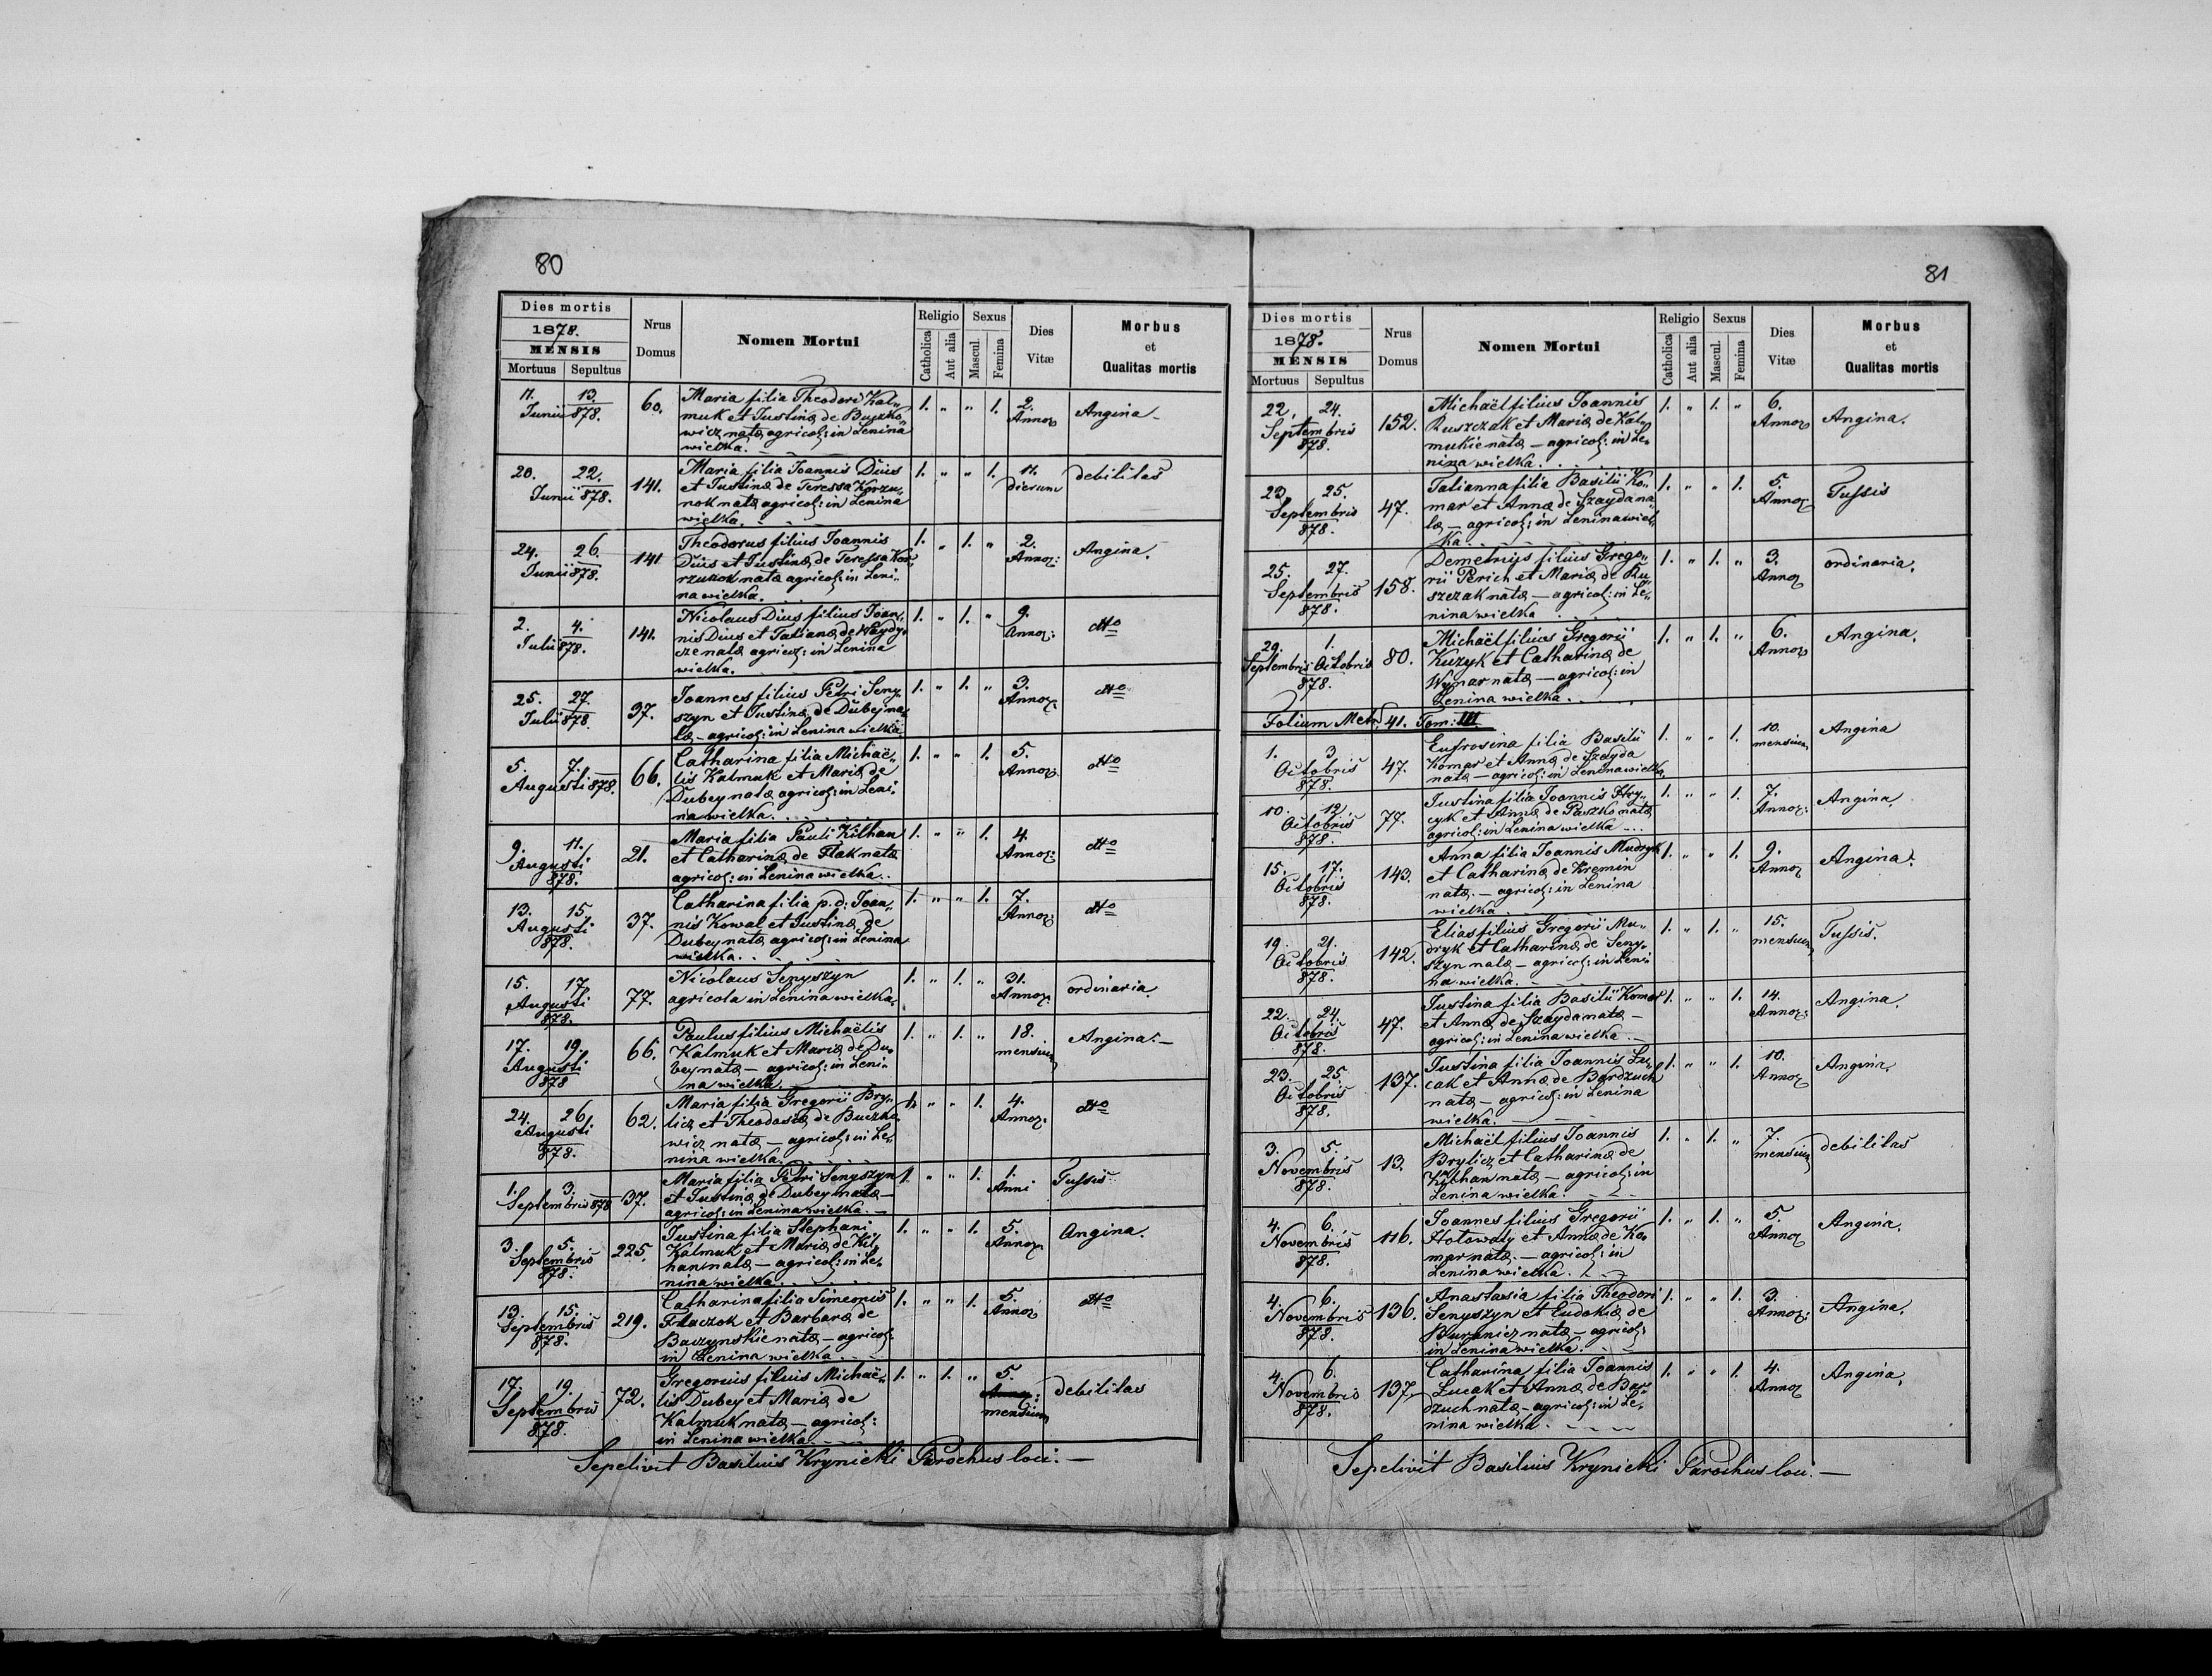 80
Dies mortis
1878.
MENSIS
Mortuus Sepultus
Nrus
Domus
Nomen Mortui
Religio
Catholica
Aut alia
Sexus
Mascul.
Femina
Dies
Vitæ
Morbus
et
Qualitas mortis
11. 13.
Junii 878.
60.
Maria filia Theodori Kal„
muk et Justinæ de Buczko„
wicz nata agricol: in Lenina
wielka.
1. „ „ 1.
2.
Annor
Angina –
20. 22.
Junii 878.
141.
Maria filia Joannis Dius
et Justinæ de Teressa Korzu„
nok nata agricol: in Lenina
wielka.
1. „ „ 1.
11.
dierum
debilitas
24. 26.
Junii 878.
141
Theodorus filius Joannis
Dius et Justinæ de Teressa Kor„
rzunok nata agricol: in Leni„
na wielka.
1. „ 1. „
2.
Annor:
Angina.
2. 4.
Julii 878.
141.
Nicolaus Dius filius Joan„
nis Dius et Tatianæ de Haydy„
cze nata agricol: in Lenina
wielka.
1. „ 1. „
9.
Annor:
dtto
25. 27.
Julii 878.
37.
Joannes filius Petri Seny„
szyn et Justinæ de Dubey na„
ta – agricol: in Lenina wielka.
1. „ 1. „
3.
Annor.
dtto
5. 7.
Augusti 878.
66.
Catharina filia Michaë„
lis Kalmuk et Mariæ de
Dubey nata agricol: in Leni„
na wielka.
1. „ „ 1.
5.
Annor.
dtto
9. 11.
Augusti
878.
21.
Maria filia Pauli Kilhan
et Catharinæ de Flak nata
agricol: in Lenina wielka.
1. „ „ 1.
4.
Annor:
dtto
13. 15.
Augusti
878.
37.
Catharina filia p. d: Joan„
nis Kowal et Justinæ de
Dubey nata agricol: in Lenina
wielka.
1. „ „ 1.
7.
Annor:
dtto
15. 17.
Augusti
878.
77.
Nicolaus Senyszyn
agricola in Lenina wielka.
1. „ 1. „
31.
Annor.
ordinaria.
17. 19.
Augusti
878
66.
Paulus filius Michaëlis
Kalmuk et Mariæ de Du„
bey nata – agricol: in Leni„
na wielka
1. „ 1. „
18.
mensium
Angina. –
24. 26.
Augusti
878.
62.
Maria filia Gregorii Bry„
licz et Theodosiæ de Buczko„
wicz nata – agricol: in Le„
nina wielka.
1. „ „ 1.
4.
Annor.
dtto
1. 3.
Septembris 878
37.
Maria filia Petri Senyszyn
et Justinæ de Dubey nata –
agricol: in Lenina wielka. –
1. „ „ 1.
1.
Anni
Tussis
3. 5.
Septembris
878.
225.
Justina filia Stephani
Kalmuk et Mariæ de Kil„
han nata – agricol: in Le„
nina wielka.
1. „ „ 1.
5.
Annor
Angina.
13. 15.
Septembris
878.
219.
Catharina filia Simeonis
Flaczok et Barbaræ de
Baczynskie nata – agricol:
in Lenina wielka.
1. „ „ 1.
5.
Annor
dtto
17. 19.
Septembris
878.
72.
Gregorius filius Michaë„
lis Dubey et Mariæ de
Kalmuk nata – agricol:
in Lenina wielka.
1. „ 1. „
5.
Annor:
mensium
debilitas
Sepelivit Basilius Krynicki Parochus loci. –
81
Dies mortis
1878.
MENSIS
Mortuus Sepultus
Nrus
Domus
Nomen Mortui
Religio
Catholica
Aut alia
Sexus
Mascul.
Femina
Dies
Vitæ
Morbus
et
Qualitas mortis
22. 24.
Septembris
878.
152.
Michaël filius Joannis
Ruszczak et Mariæ de Kal„
mukie nata – agricol: in Le„
nina wielka.
1. „ 1. „
6.
Annor
Angina.
23. 25.
Septembris
878.
47.
Tatianna filia Basilii Ko„
mar et Annæ de Szayda na„
ta – agricol: in Lenina wiel„
ka.
1. „ „ 1.
5.
Annor
Tussis
25. 27.
Septembris
878.
158.
Demetrius filius Grego„
rii Perich et Mariæ de Ru„
szczak nata – agricol: in Le„
nina wielka
1. „ 1. „
3.
Annor
ordinaria.
29. 1.
Septembris Octobris
878.
80.
Michaël filius Gregorii
Kuzyk et Catharinæ de
Wynar nata – agricol: in
Lenina wielka.
1. „ 1. „
6.
Annor
Angina.
Folium Metr: 41. Tom: III
1. 3
Octobris
878.
47.
Eufrosina filia Basilii
Komar et Annæ de Szayda
nata – agricol: in Lenina wielka.
1. „ „ 1.
10.
mensium
Angina
10. 12.
Octobris
878.
77.
Justina filia Joannis Hry„
cyk et Annæ de Paszko nata
agricol: in Lenina wielka
1. „ „ 1.
7.
Annor:
Angina
15. 17.
Octobris
878.
143.
Anna filia Joannis Mudryk
et Catharinæ de Kremin
nata. – agricol: in Lenina
wielka
1. „ „ 1.
9.
Annor
Angina.
19. 21.
Octobris
878.
142.
Elias filius Gregorii Mu„
dryk et Catharinæ de Seny„
szyn nata – agricol: in Leni„
na wielka.
1. „ 1. „
15.
mensium
Tussis.
22. 24.
Octobris
878.
47.
Justina filia Basilii Komar
et Annæ de Szayda nata –
agricol: in Lenina wielka
1. „ „ 1.
14.
Annor:
Angina.
23. 25
Octobris
878.
137.
Justina filia Joannis Lu„
cak et Annæ de Bardzuch
nata – agricol: in Lenina
wielka.
1. „ „ 1.
10.
Annor
Angina.
3. 5.
Novembris
878.
13.
Michaël filius Joannis
Brylicz et Catharinæ de
Kilhan nata – agricol: in
Lenina wielka.
1. „ 1. „
7.
mensium
debilitas
4. 6.
Novembris
878.
116.
Joannes filius Gregorii
Hotowaty et Annæ de Ko„
mar nata. – agricol: in
Lenina wielka.
1. „ 1. „
5.
Annor
Angina.
4. 6.
Novembris
878.
136.
Anastasia filia Theodori
Senyszyn et Eudokiæ de
Buranicz nata – agricol:
in Lenina wielka.
1. „ „ 1.
3.
Annor:
Angina.
4. 6.
Novembris
878.
137
Catharina filia Joannis
Lucak et Annæ de Bar„
dzuch nata – agricol: in Le„
nina wielka.
1. „ „ 1.
4.
Annor
Angina,
Sepelivit Basilius Krynicki Parochus loci. –